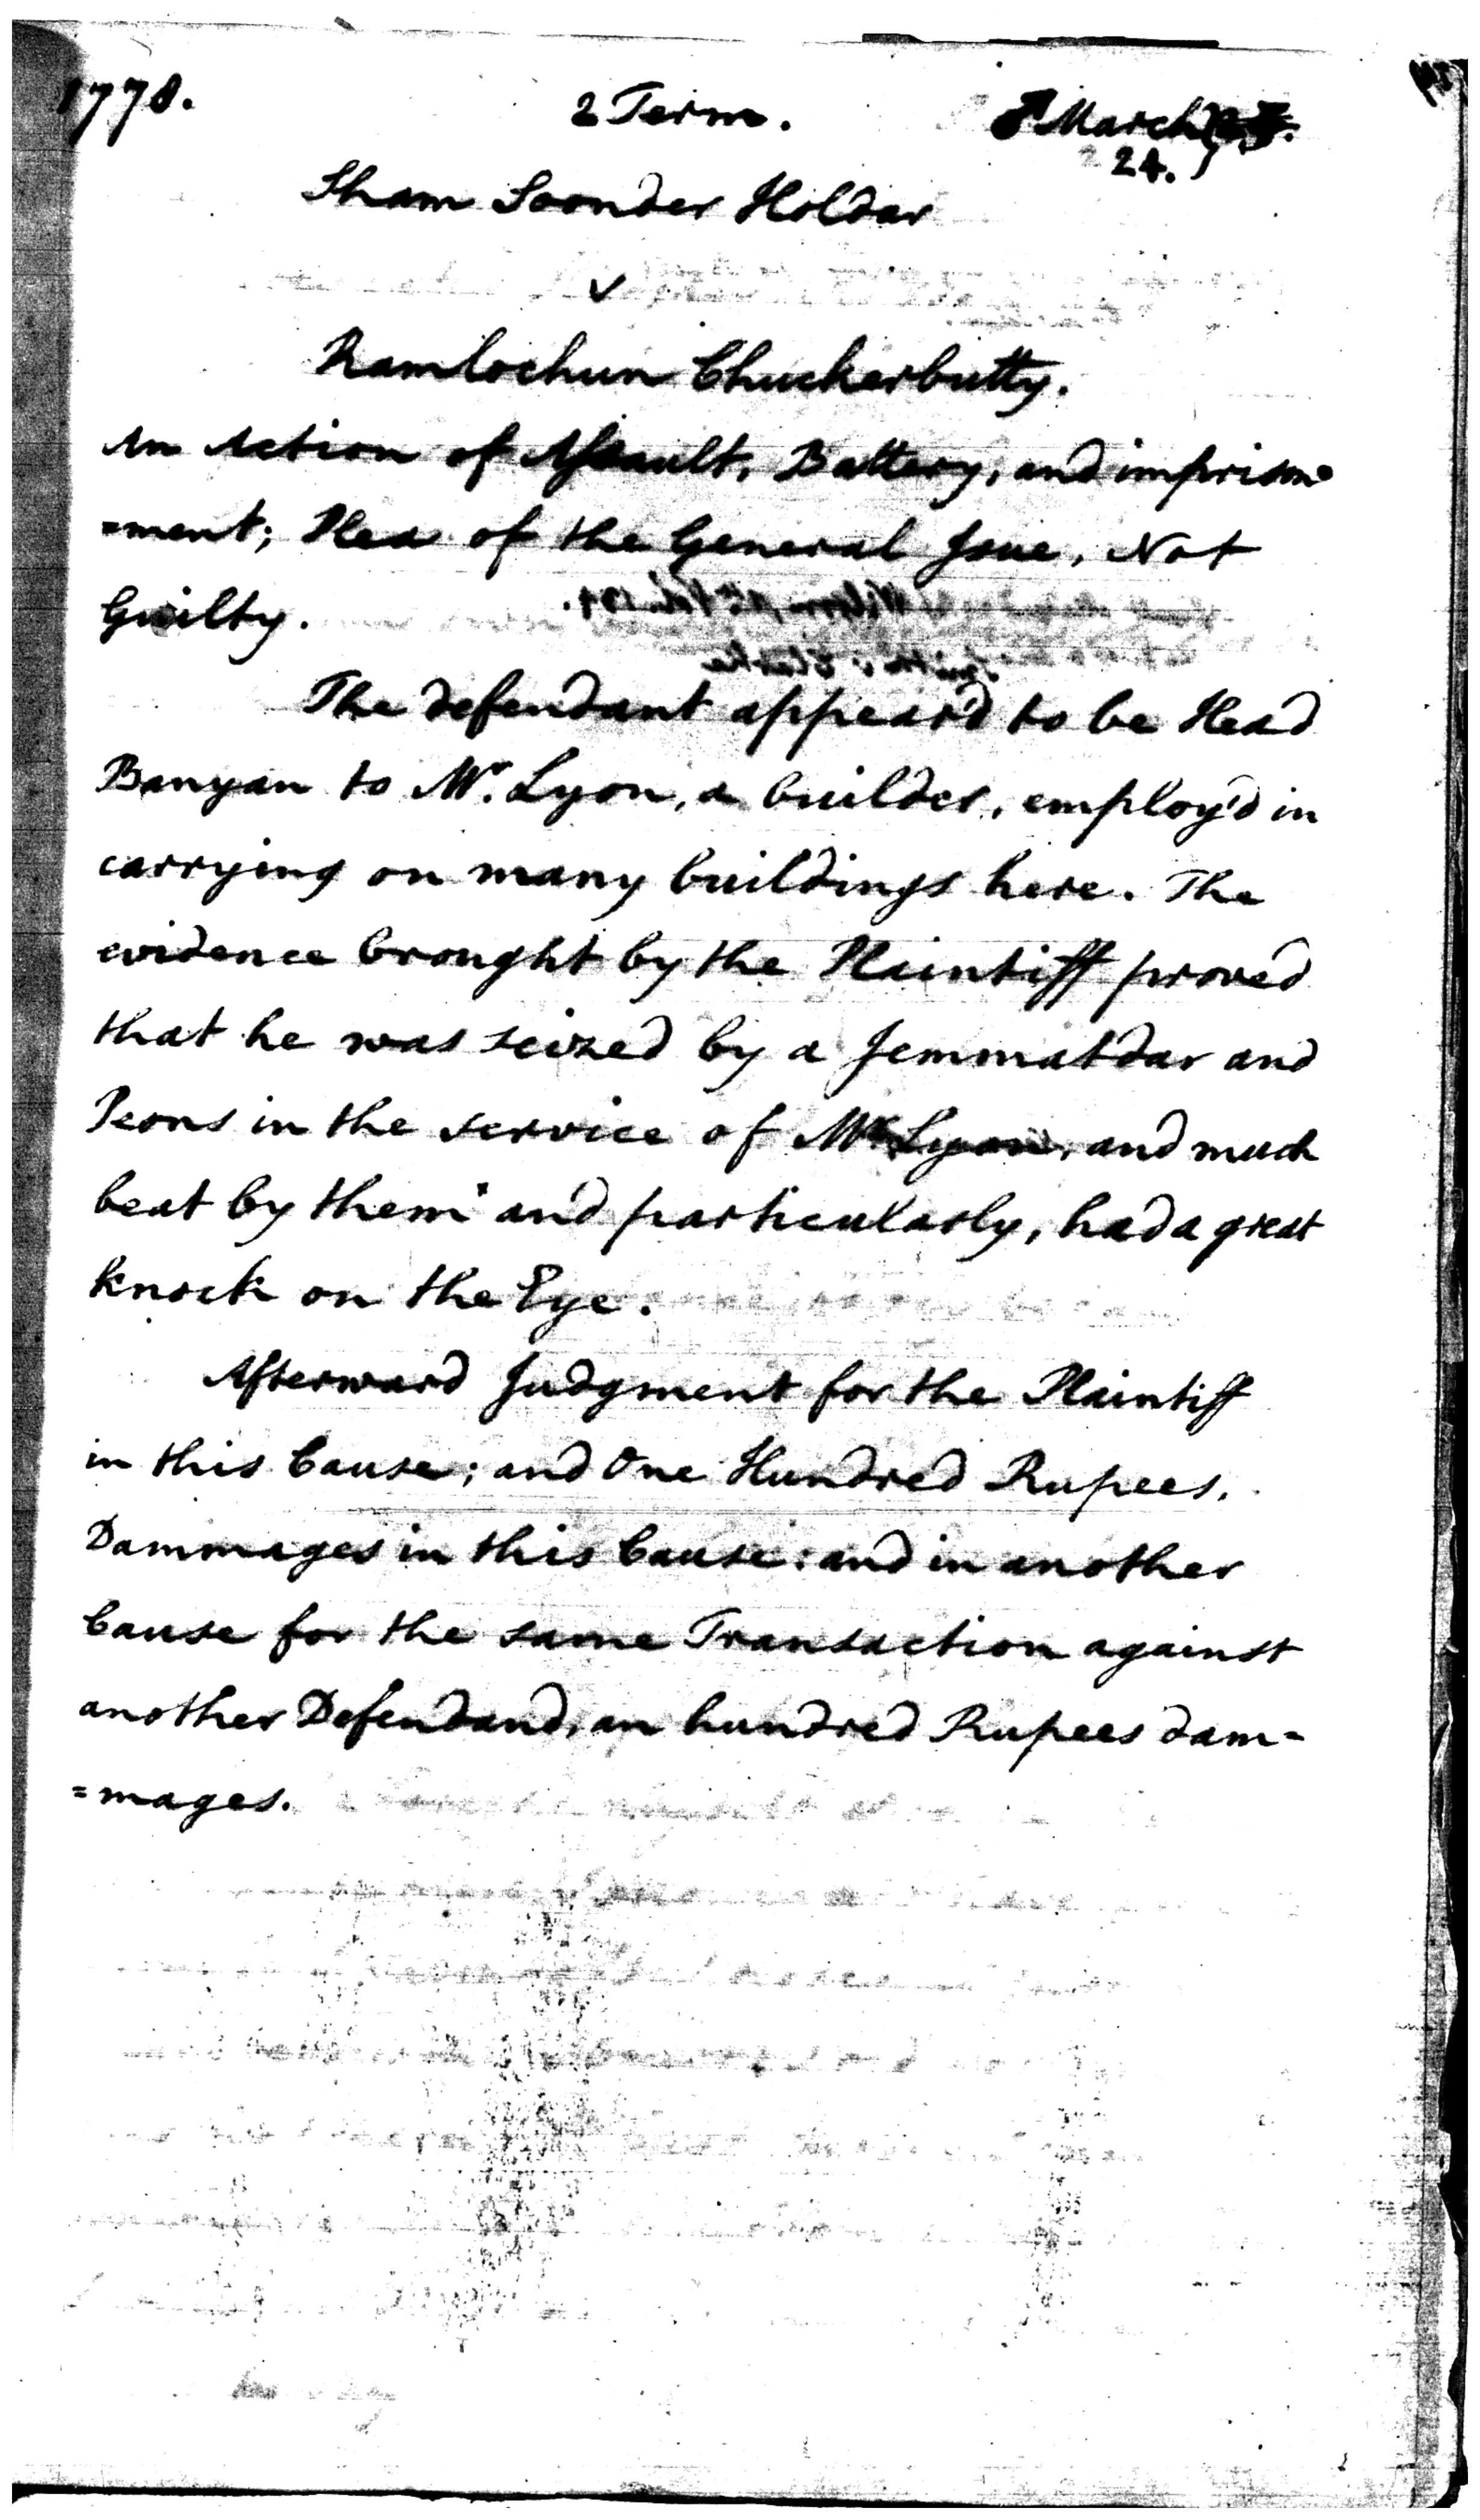 1778.
2 Term.
♂ March
24.
Sham Soonder Holdar
v
Ramlochun Chuckerbutty.
An Action of Assault, Battery, and imprison=
=ment; Plea of the General Issue, Not
Guilty.
The defendant appear'd to be Head
Banyan to Mr. Lyon, a builder, employ'd in
carrying on many buildings here. The
evidence brought by the Plaintiff proved
that he was seized by a Jemmatdar and
Peons in the service of Mr Lyon, and much
beat by them and particularly, had a great
knock on the Eye.
Afterward Judgment for the Plaintiff
in this Cause; and One Hundred Rupees,
Dammages in this Cause: and in another
Cause for the same Transaction against
another Defendand, an hundred Rupees dam=
=mages.